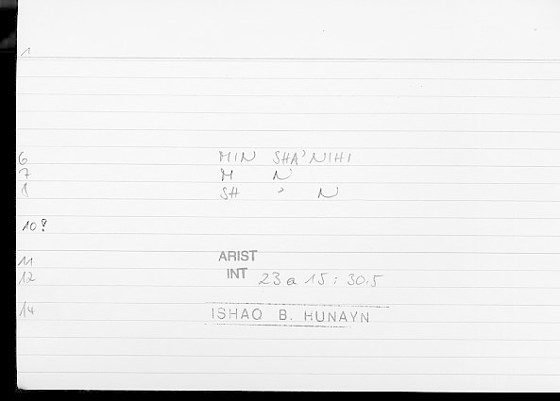 1
6 MIN SHA'NIHI
7 M N
1 SH ' N
10?
11 ARIST
12 INT 23 a 15 : 30.5
14 ISHAQ B. HUNAYN